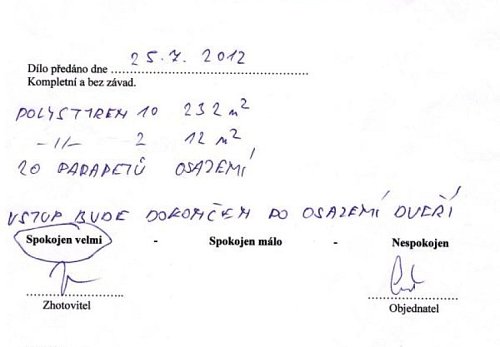 Dílo předáno dne 25.7. 2012
Kompletní a bez závad.
POLYSTIREN 10 232 m²
-//- 2 12 m²
20 PARAPETŮ OSAZENÍ
VSTUP BUDE DOKONČEN PO OSAZENÍ DVEŘÍ
Spokojen velmi - Spokojen málo - Nespokojen
Zhotovitel Objednatel